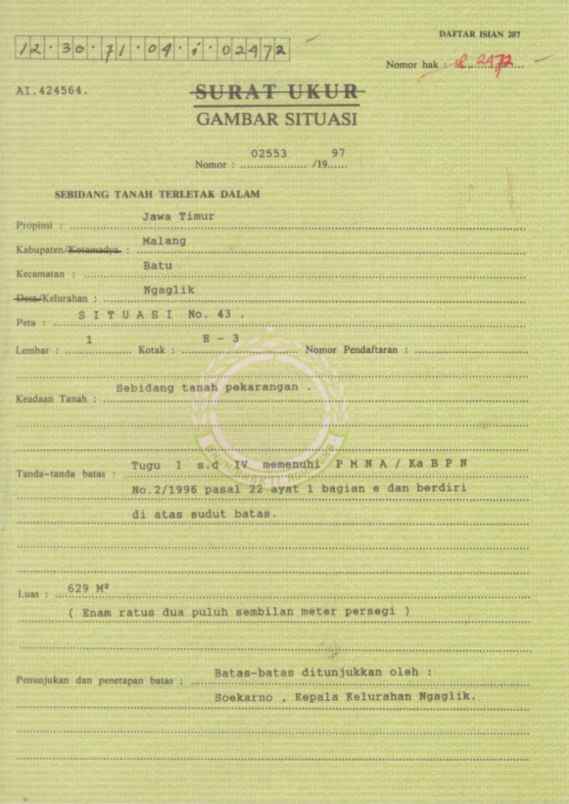 DAFTAR ISIAN 207
12.30.71.04.1.02472
Nomor hak : 2472
AI.424564.
SURAT UKUR
GAMBAR SITUASI
Nomor : 02553 /19 97
SEBIDANG TANAH TERLETAK DALAM
Propinsi : Jawa Timur
Kabupaten/Kotamadya : Malang
Kecamatan : Batu
Desa/Kelurahan : Ngaglik
Peta : S I T U A S I No. 43 .
Lembar : 1 Kotak : E - 3 Nomor Pendaftaran :
Keadaan Tanah : Sebidang tanah pekarangan .
Tanda-tanda batas : Tugu I s.d IV memenuhi P M N A / Ka B P N
No.2/1996 pasal 22 ayat 1 bagian e dan berdiri
di atas sudut batas.
Luas : 629 M²
( Enam ratus dua puluh sembilan meter persegi )
Penunjukan dan penetapan batas : Batas-batas ditunjukkan oleh :
Soekarno , Kepala Kelurahan Ngaglik.